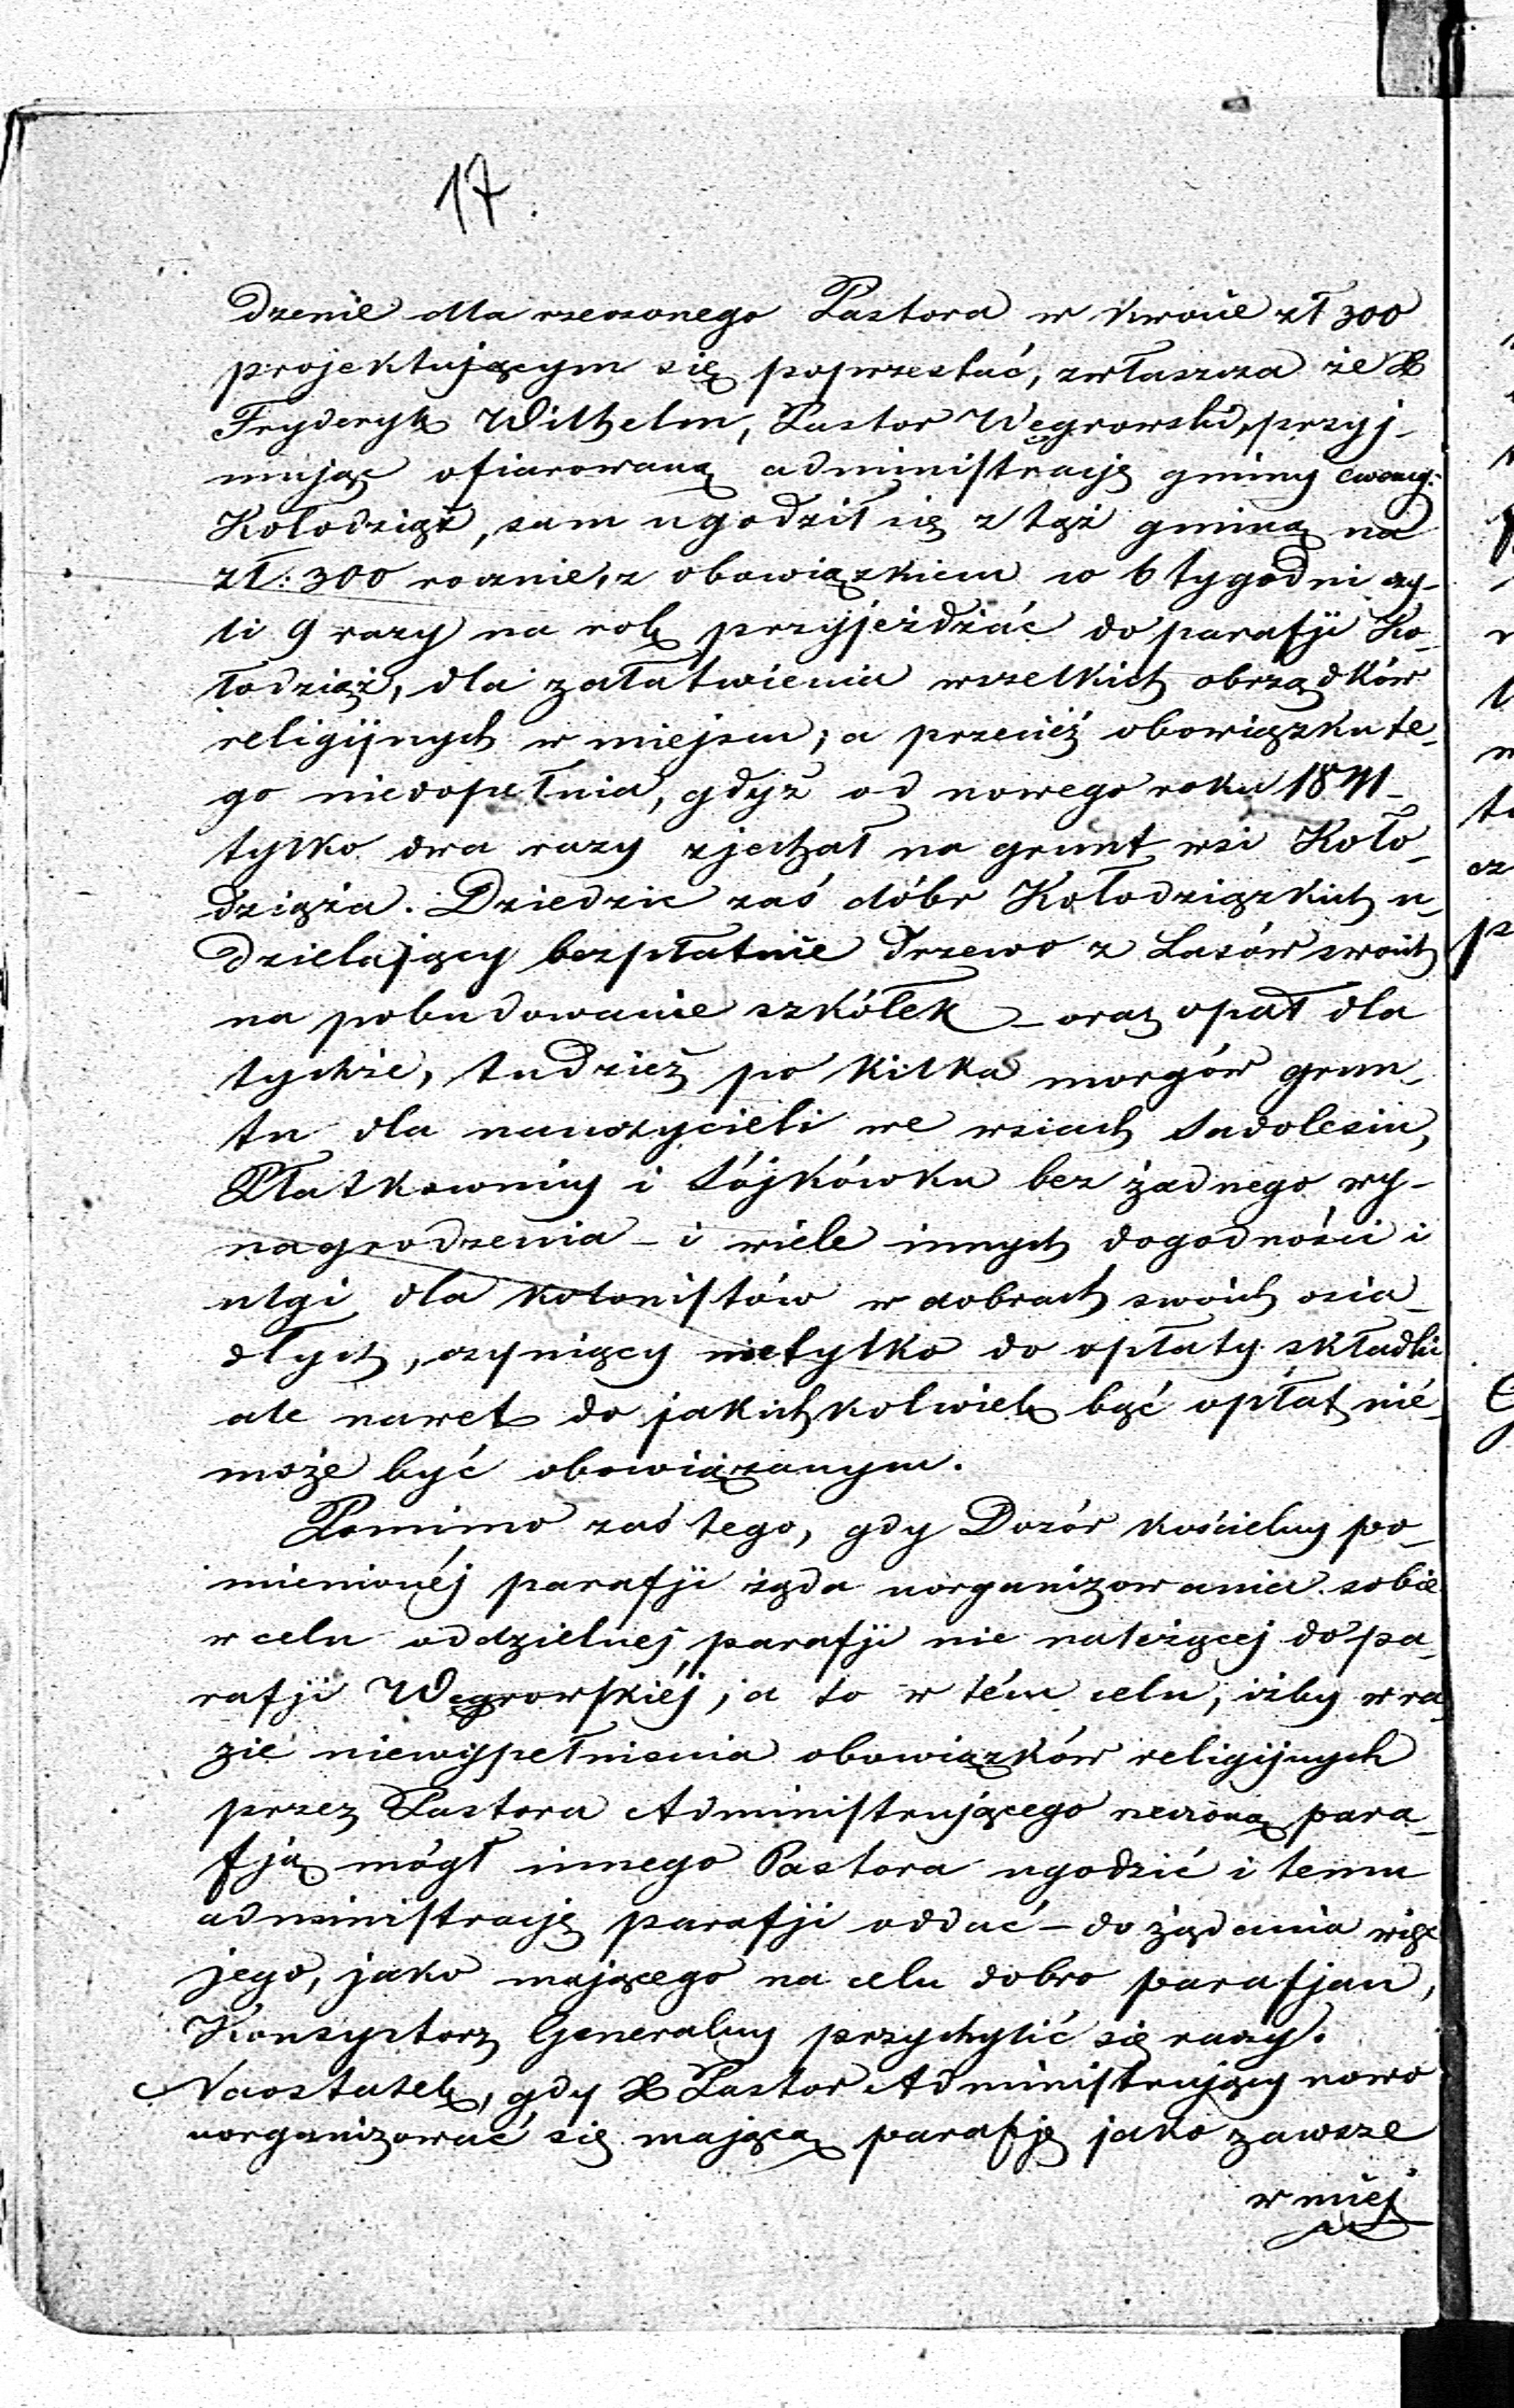 17.
dzenie dla rzeczonego Pastora w kwocie zł 300
projektującym się poprzestać, zwłaszcza że X
Fryderyk Wilhelm, Pastor Węgrowski, przyj-
mując ofiarowaną administrację gminy ewang:
Kołodziąż, sam ugodził się z tąż gminą na
zł: 300 rocznie, z obowiązkiem co 6 tygodni czy-
li 9 razy na rok przyjeżdżać do parafji Ko-
łodziąż, dla załatwienia wszelkich obrządków
religijnych w miejscu; a przecież obowiązku te-
go niedopełnia, gdyż od nowego roku 1841-
tylko dwa razy zjechał na grunt wsi Koło-
dziąża. Dziedzic zaś dóbr Kołodziązkich u-
dzielający bezpłatnie drzewo z Lasów swoich
na pobudowanie szkółek - oraz opał dla
tychże, tudzież po kilka morgów grun-
tu dla nauczycieli we wsiach Sadolesiu,
Płatkownicy i Sójkówku bez żadnego wy-
nagrodzenia - i wiele innych dogodności i
ulgi dla kolonistów w dobrach swoich osia-
dłych, czyniący nietylko do opłaty składki
ale nawet do jakichkolwiek bąć opłat nie-
może być obowiązanym.
Pomimo zaś tego, gdy Dozór kościelny po-
mienionéj parafji żąda uorganizowania sobie
w celu oddzielnej parafji nie należącej do pa-
rafji Węgrowskiéj, a to w tém celu, iżby w ra-
zie niewypełnienia obowiązków religijnych
przez Pastora Administrującego rzeczoną para-
fją mógł innego Pastora ugodzić i temu
administrację parafji oddać - do żądania więc
jego, jako mającego na celu dobro parafjan,
Konsystorz Generalny przychylić się raczy.
Naostatek, gdy X Pastor Administrujący nowo
uorganizować się mającą parafję jako zawsze
w niéj